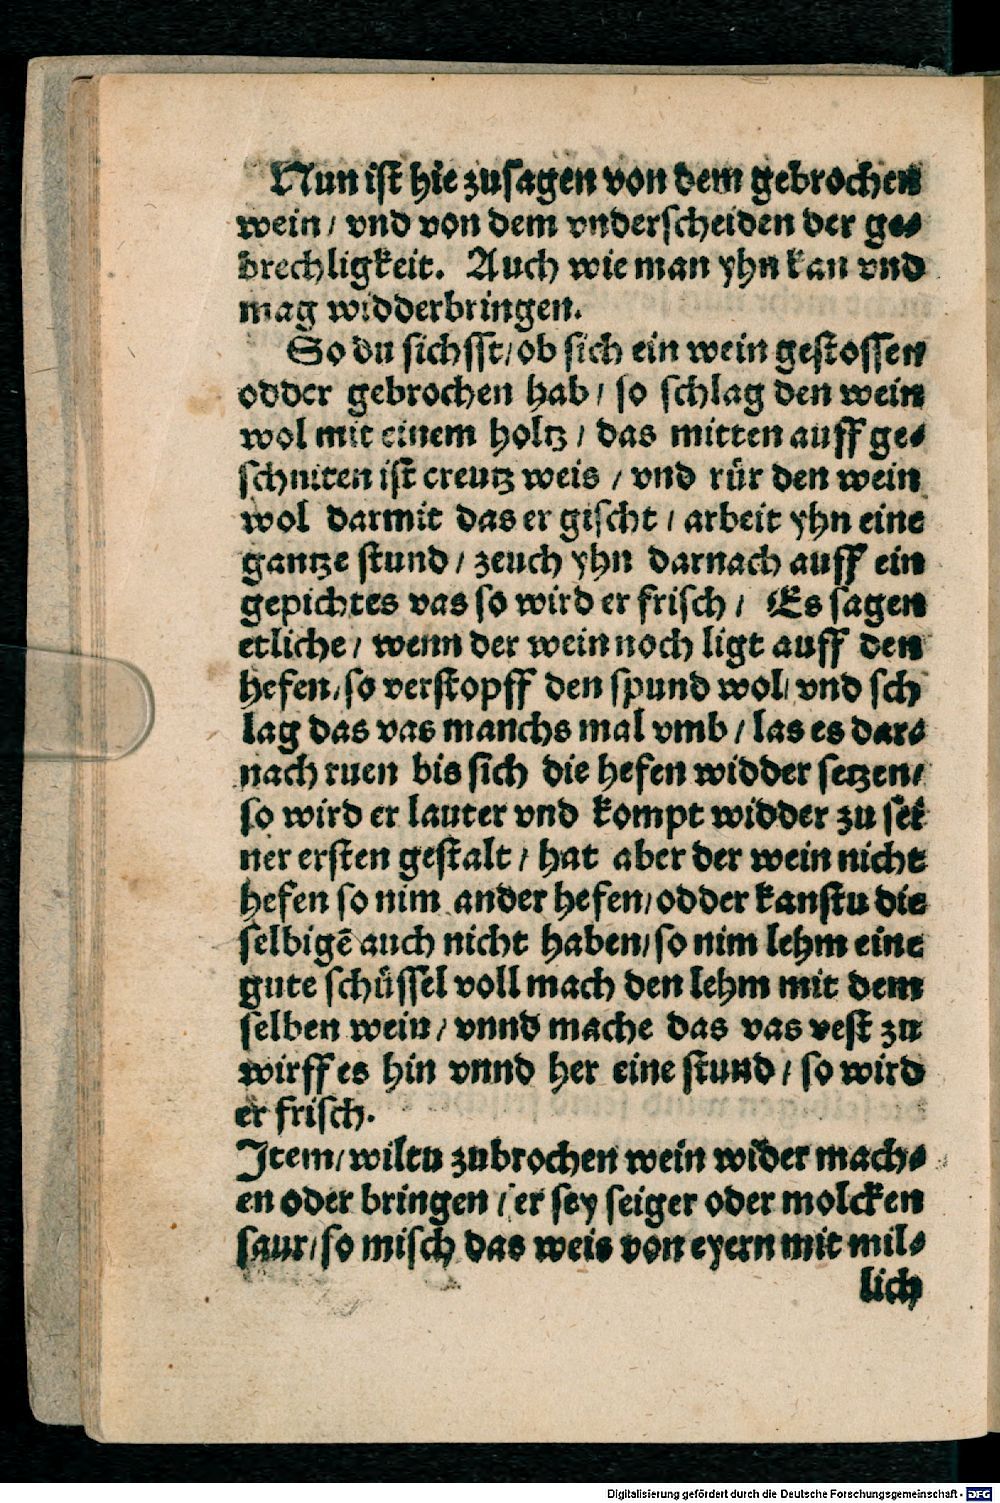 Nun ist hie zusagen von dem gebrochen
wein / vnd von dem vnderscheiden der ge-
brechligkeit. Auch wie man yhn kan vnd
mag widderbringen.
So du sichsst / ob sich ein wein gestossen
odder gebrochen hab / so schlag den wein
wol mit einem holtz / das mitten auff ge-
schniten ist creutz weis / vnd rür den wein
wol darmit das er gischt / arbeit yhn eine
gantze stund / zeuch yhn darnach auff ein
gepichtes vas so wird er frisch / Es sagen
etliche / wenn der wein noch ligt auff den
hefen / so verstopff den spund wol / vnd sch
lag das vas manchs mal vmb / las es dar-
nach ruen bis sich die hefen widder setzen /
so wird er lauter vnd kompt widder zu sei
ner ersten gestalt / hat aber der wein nicht
hefen so nim ander hefen / odder kanstu die
selbigē auch nicht haben / so nim lehm eine
gute schüssel voll mach den lehm mit dem
selben wein / vnnd mache das vas vest zu
wirff es hin vnnd her eine stund / so wird
er frisch.
Item / wiltu zubrochen wein wider mach-
en oder bringen / er sey seiger oder molcken
saur / so misch das weis von eyern mit mil-
lich
Digitalisierung gefördert durch die Deutsche Forschungsgemeinschaft - DFG